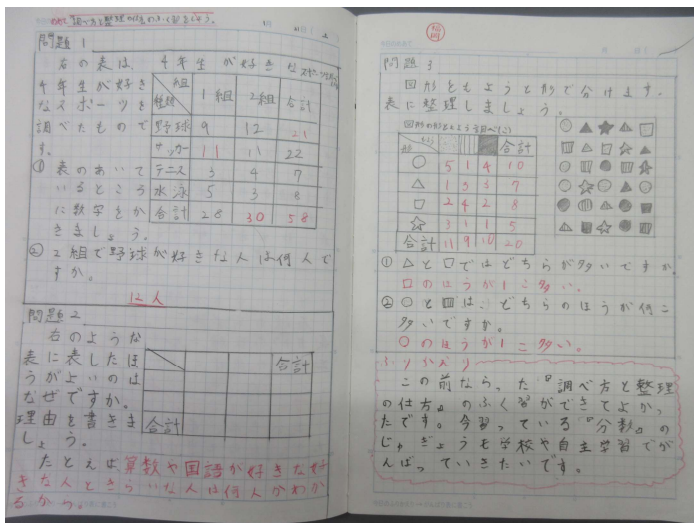 めあて 調べ方と整理の仕方のふく習をしよう。
問題1
右の表は、4年生が好き
4年生が好き
なスポーツを
調べたもので
す。
① 表のあいて
いるところ
に数字をか
きましょう。
組 種類 1組 2組 合計
野球 9 12 21
サッカー 11 11 22
テニス 3 4 7
水泳 5 3 8
合計 28 30 58
② 2組で野球が好きな人は何人で
すか。
12人
問題2
右のような
表に表したほ
うがよいのは
なぜですか。
理由を書きま
しょう。
合計
合計
たとえば算数や国語が好きな好
きな人ときらいな人は何人かわか
るから。
問題3
図形をもようと形で分けます。
表に整理しましょう。
図形の形ともよう調べ(こ)
もよう 形 合計
○ 5 1 4 10
△ 1 3 3 7
□ 2 4 2 8
☆ 3 1 1 5
合計 11 9 10 20
① △と□ではどちらが多いですか
□のほうが1こ多い。
② ○と は、どちらのほうが何こ
多いですか。
○のほうが1こ多い。
ふりかえり
この前ならった『調べ方と整理
の仕方』のふく習ができてよかっ
たです。今習っている『分数』の
じゅぎょうも学校や自主学習でが
んばっていきたいです。